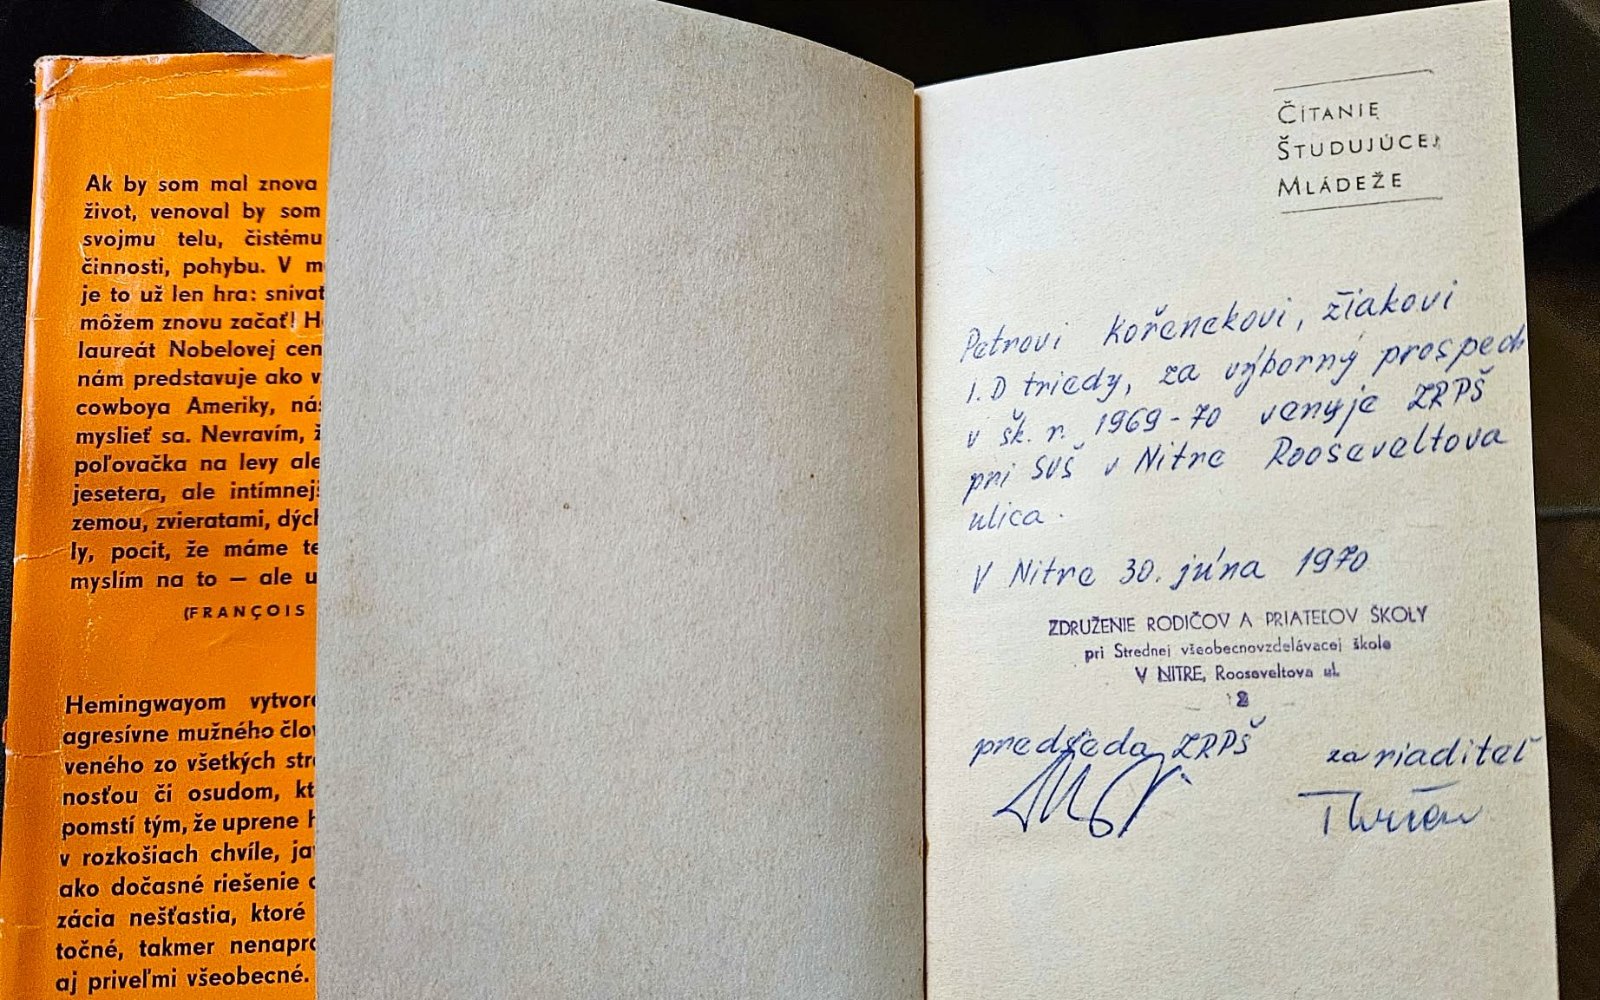 Ak by som mal znova
život, venoval by som
svojmu telu, čistému
činnosti, pohybu. V m
je to už len hra: snívat
môžem znovu začať! H
laureát Nobelovej cen
nám predstavuje ako v
cowboya Ameriky, nás
myslieť sa. Nevravím, ž
poľovačka na levy ale
jesetera, ale intímnejš
zemou, zvieratami, dých
ly, pocit, že máme te
myslím na to — ale u
(FRANÇOIS
Hemingwayom vytvore
agresívne mužného člov
veného zo všetkých stra
nosťou či osudom, kt
pomstí tým, že uprene h
v rozkošiach chvíle, ja
ako dočasné riešenie
zácia nešťastia, ktoré
točné, takmer nenapro
aj priveľmi všeobecné.
ČÍTANIE
ŠTUDUJÚCEJ
MLÁDEŽE
Petrovi Kořenekovi, žiakovi
I.D triedy, za výborný prospech
v šk. r. 1969-70 venuje ZRPŠ
pri SVŠ v Nitre Rooseveltova
ulica.
V Nitre 30. júna 1970
ZDRUŽENIE RODIČOV A PRIATEĽOV ŠKOLY
pri Strednej všeobecnovzdelávacej škole
V NITRE, Rooseveltova ul.
2
predseda ZRPŠ za riaditeľ